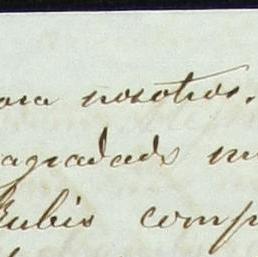 para nosotros.
agradado m
Rubis comp